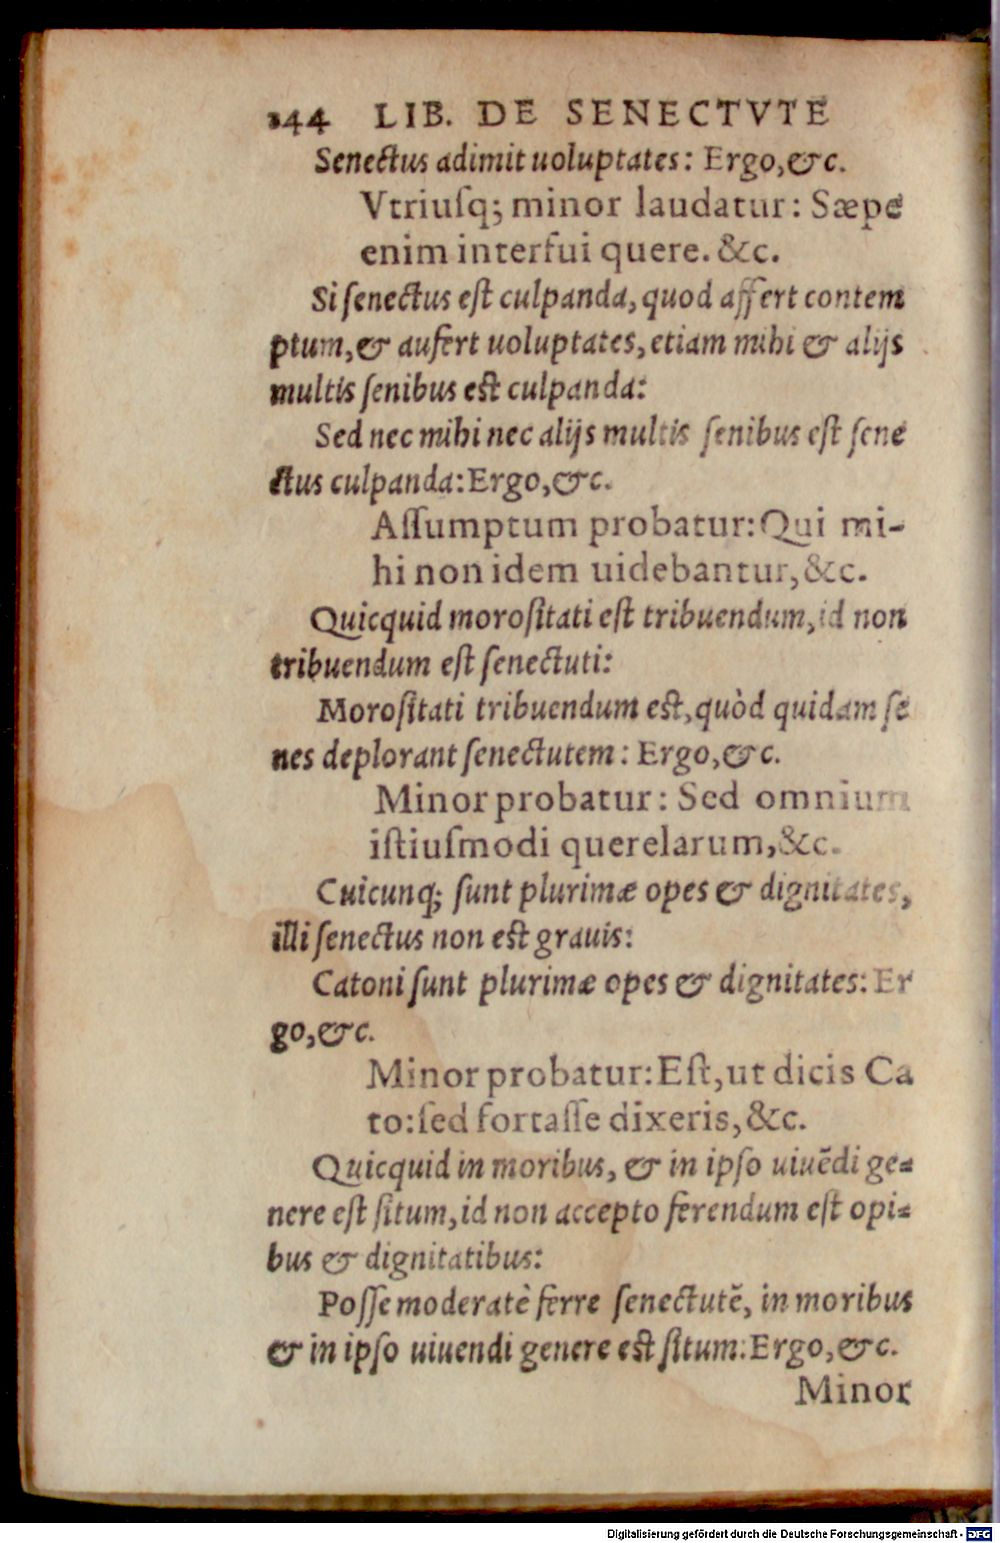 144 LIB. DE SENECTVTE
Senectus adimit uoluptates: Ergo,&c.
Vtriusq; minor laudatur: Sæpe
enim interfui quere. &c.
Si ſenectus eſt culpanda, quod affert contem
ptum,& aufert uoluptates, etiam mihi & alijs
multis ſenibus eſt culpanda:
Sed nec mihi nec alijs multis ſenibus eſt ſene
ctus culpanda: Ergo,&c.
Aſſumptum probatur: Qui mi-
hi non idem uidebantur,&c.
Quicquid moroſitati eſt tribuendum, id non
tribuendum eſt ſenectuti:
Moroſitati tribuendum eſt, quòd quidam ſe
nes deplorant ſenectutem: Ergo,&c.
Minor probatur: Sed omnium
iſtiuſmodi querelarum,&c.
Cuicunq; ſunt plurimæ opes & dignitates,
illi ſenectus non eſt grauis:
Catoni ſunt plurimæ opes & dignitates: Er
go,&c.
Minor probatur: Eſt, ut dicis Ca
to: ſed fortaſſe dixeris,&c.
Quicquid in moribus, & in ipſo uiuẽdi ge-
nere eſt ſitum, id non accepto ferendum eſt opi-
bus & dignitatibus:
Poſſe moderatè ferre ſenectutẽ, in moribus
& in ipſo uiuendi genere eſt ſitum: Ergo,&c.
Minor
Digitalisierung gefördert durch die Deutsche Forschungsgemeinschaft - DFG